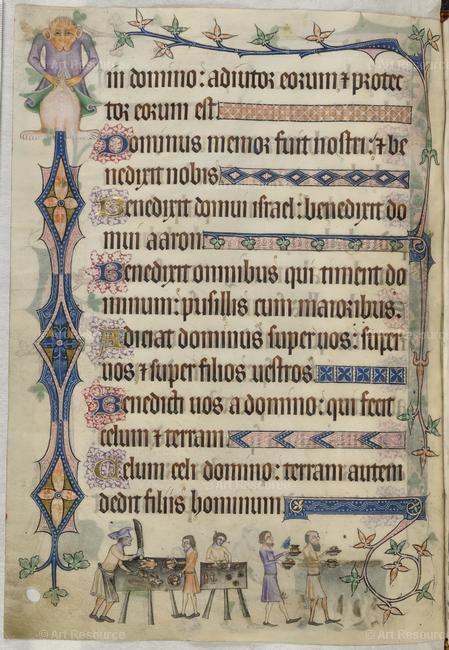 in domino: adiutor eorum ⁊ protec
tor eorum est
Dominus memor fuit nostri: ⁊ be
nedixit nobis
Benedixit domui israel: benedixit do
mui aaron
Benedixit omnibus qui timent do
minum: pusillis cum maioribus.
Adiciat dominus super uos: super
uos ⁊ super filios uestros
Benedicti uos a domino: qui fecit
celum ⁊ terram
Celum celi domino: terram autem
dedit filiis hominum
© Art Resource
© Art Resource
© Art Resource
© Art Resource